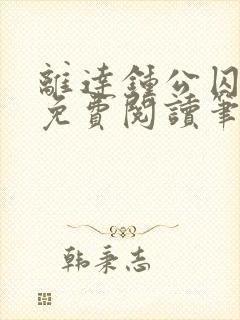 離達鍾公囚
免費閱讀筆
韩秉志